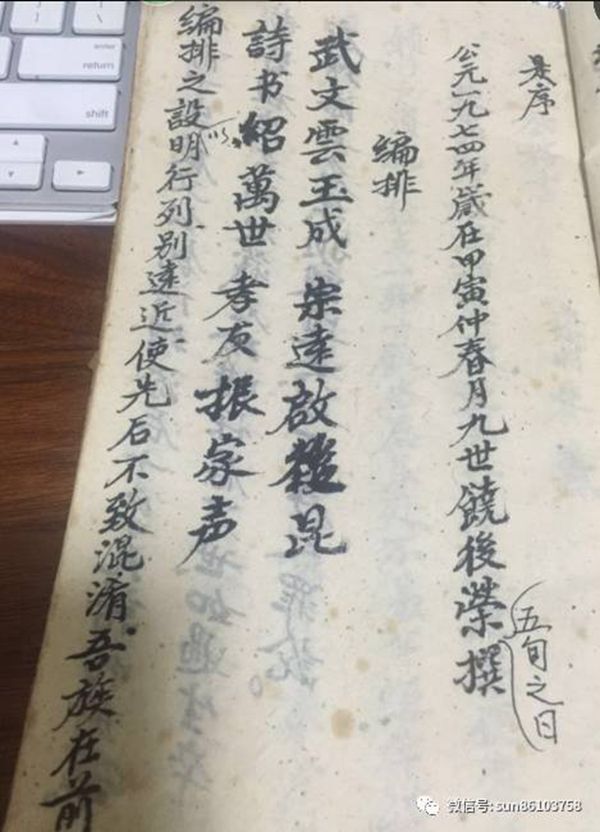 是序
公元一九七四年歲在甲寅仲春月九世饒後榮撰
五旬之日
编排
武文雲玉成 崇達啟後昆
詩书紹萬世 孝友振家声
编排之設明行列别遠近使先后不致混淆吾族在前
delete
return
shift
微信号: sun86103758